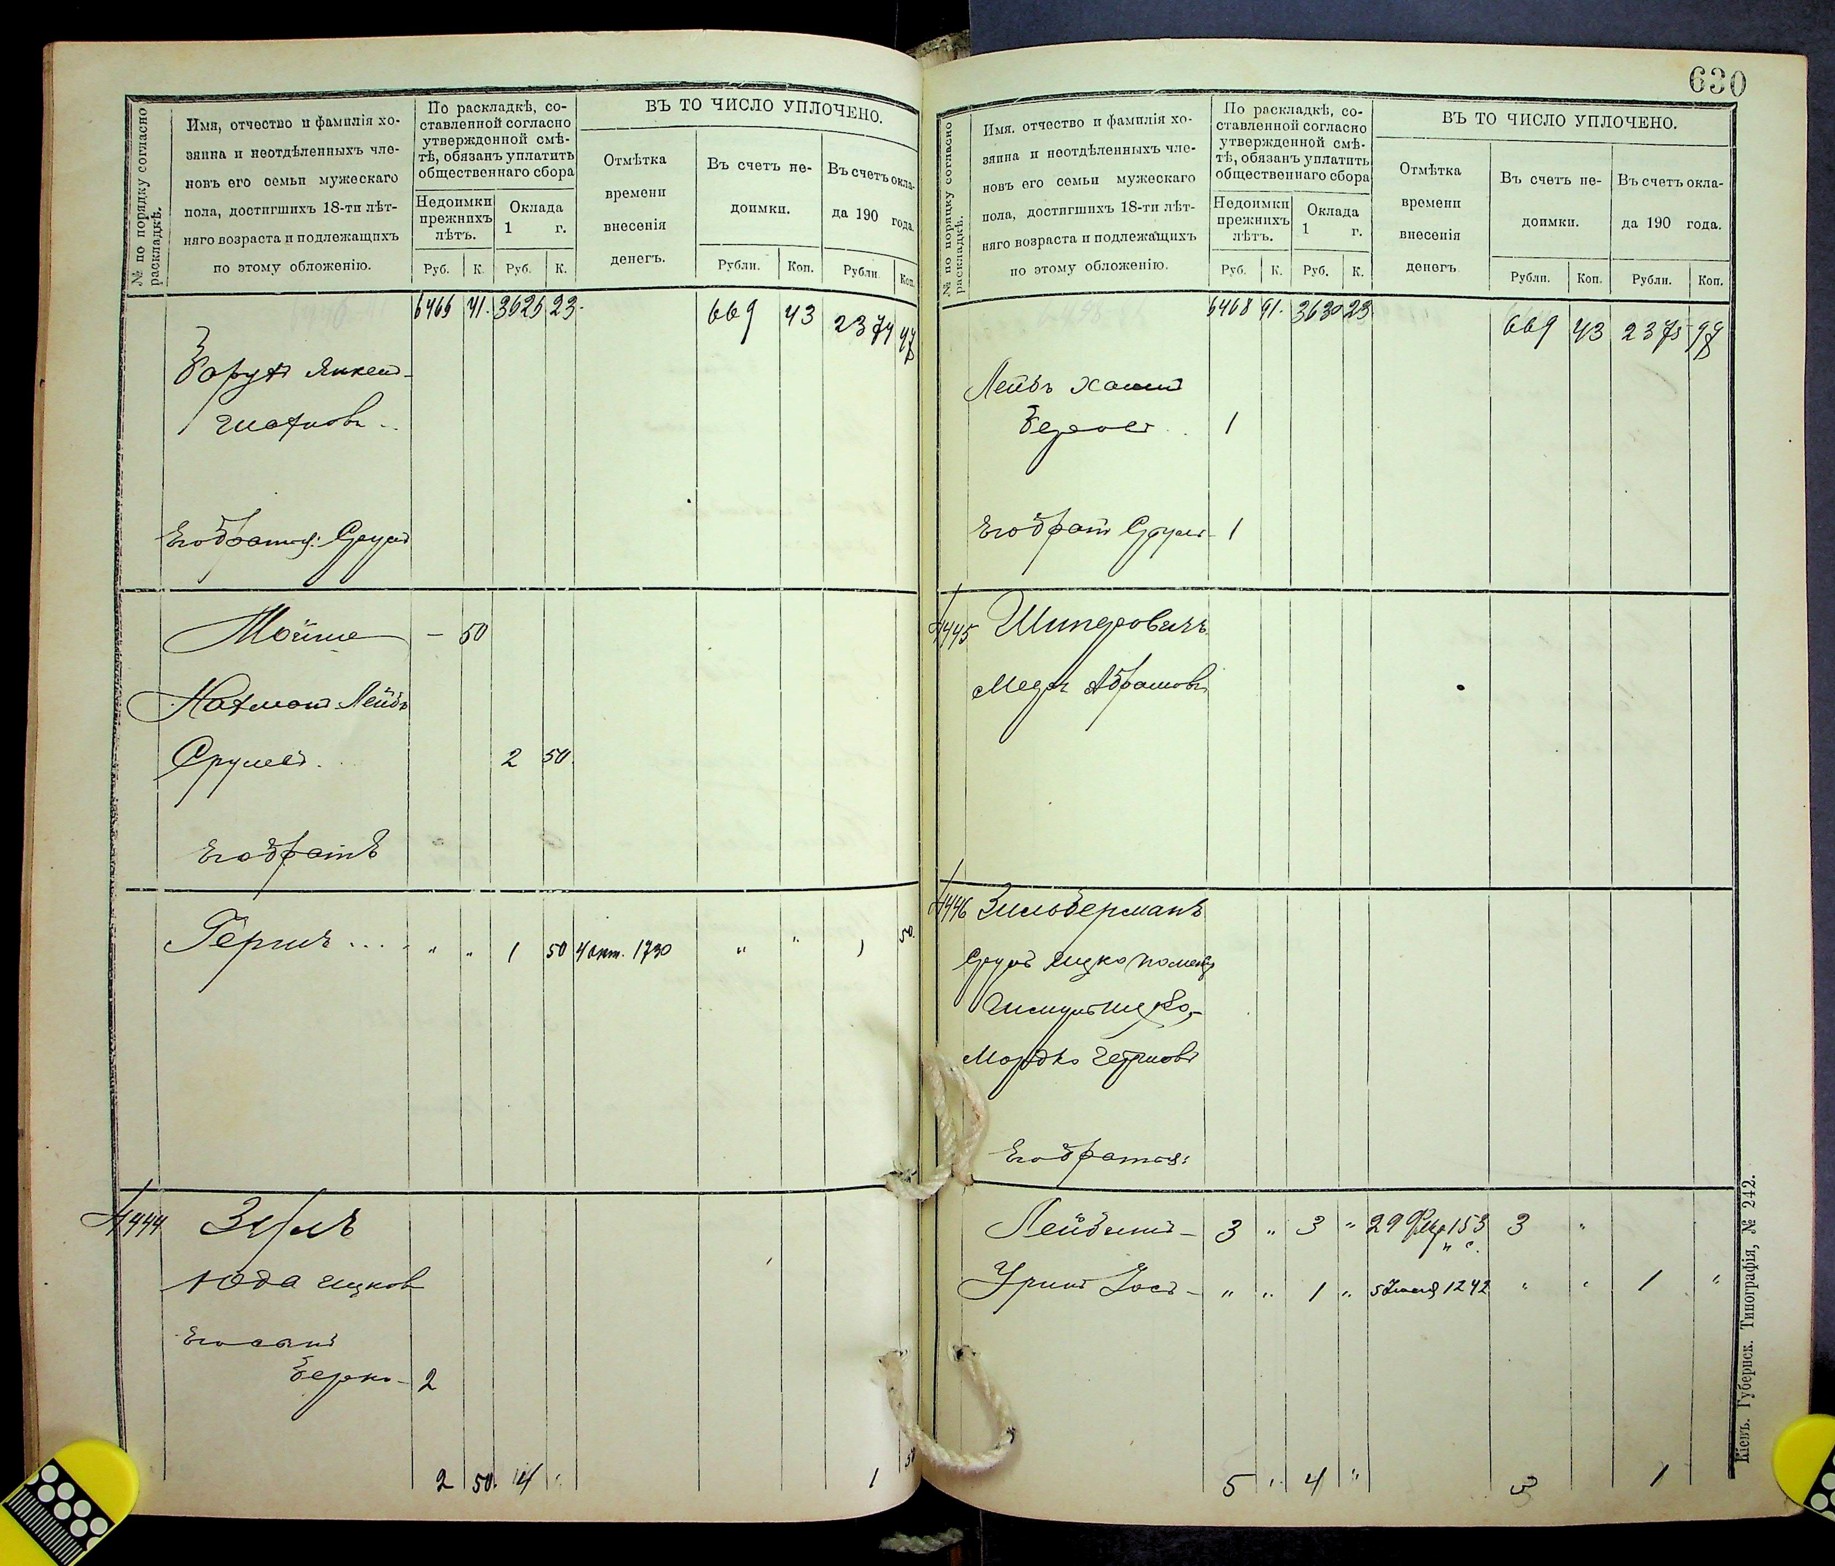 № по порядку согласно раскладкѣ.
Имя, отчество и фамилія хо-
зяина и неотдѣленныхъ чле-
новъ его семьи мужескаго
пола, достигшихъ 18-ти лѣт-
няго возраста и подлежащихъ
по этому обложенію.
По раскладкѣ, со-
ставленной согласно
утвержденной смѣ-
тѣ, обязанъ уплатить
общественнаго сбора
Недоимки
прежнихъ
лѣтъ.
Оклада
1 г.
Руб. К. Руб. К.
ВЪ ТО ЧИСЛО УПЛОЧЕНО.
Отмѣтка
времени
внесенія
денегъ.
Въ счетъ не-
доимки.
Въ счетъ окла-
да 190 года.
Рубли. Коп. Рубли Коп.
669 43 2374
Борухъ Янкель-
Его братья: Сруль
Мойше — 50
Нахманъ Лейбъ
Срулевъ. 2 50.
Его братъ
Гершъ ... „ „ 1 50 4 окт. 1730 „ „ 1 50.
4444
Юда Ицков
Его сынъ
Берко - 2
2 50. 14 „ 1 50
630
№ по порядку согласно раскладкѣ.
Имя. отчество и фамилія хо-
зяина и неотдѣленныхъ чле-
новъ его семьи мужескаго
пола, достигшихъ 18-ти лѣт-
няго возраста и подлежащихъ
по этому обложенію.
По раскладкѣ, со-
ставленной согласно
утвержденной смѣ-
тѣ, обязанъ уплатить
общественнаго сбора
Недоимки
прежнихъ
лѣтъ.
Оклада
1 г.
Руб. К. Руб. К.
ВЪ ТО ЧИСЛО УПЛОЧЕНО.
Отмѣтка
времени
внесенія
денегъ
Въ счетъ не-
доимки.
Въ счетъ окла-
да 190 года.
Рубли. Коп. Рубли. Коп.
6468 91. 3630 23 669 43 2375 97
Лейбъ Хаим
1
Его братъ Сруль - 1
4445 Шмидровичъ
Абрамовъ
4446 Зильберманъ
Сруль Ицко
Мордко
Его братья:
Лейбишъ - 3 „ 3 „ 29 153 3 „
„ „ 1 „ 5 1242 „ „ 1 „
5 „ 4 „ 3 1
Кіевъ. Губернск. Типографія, № 242.